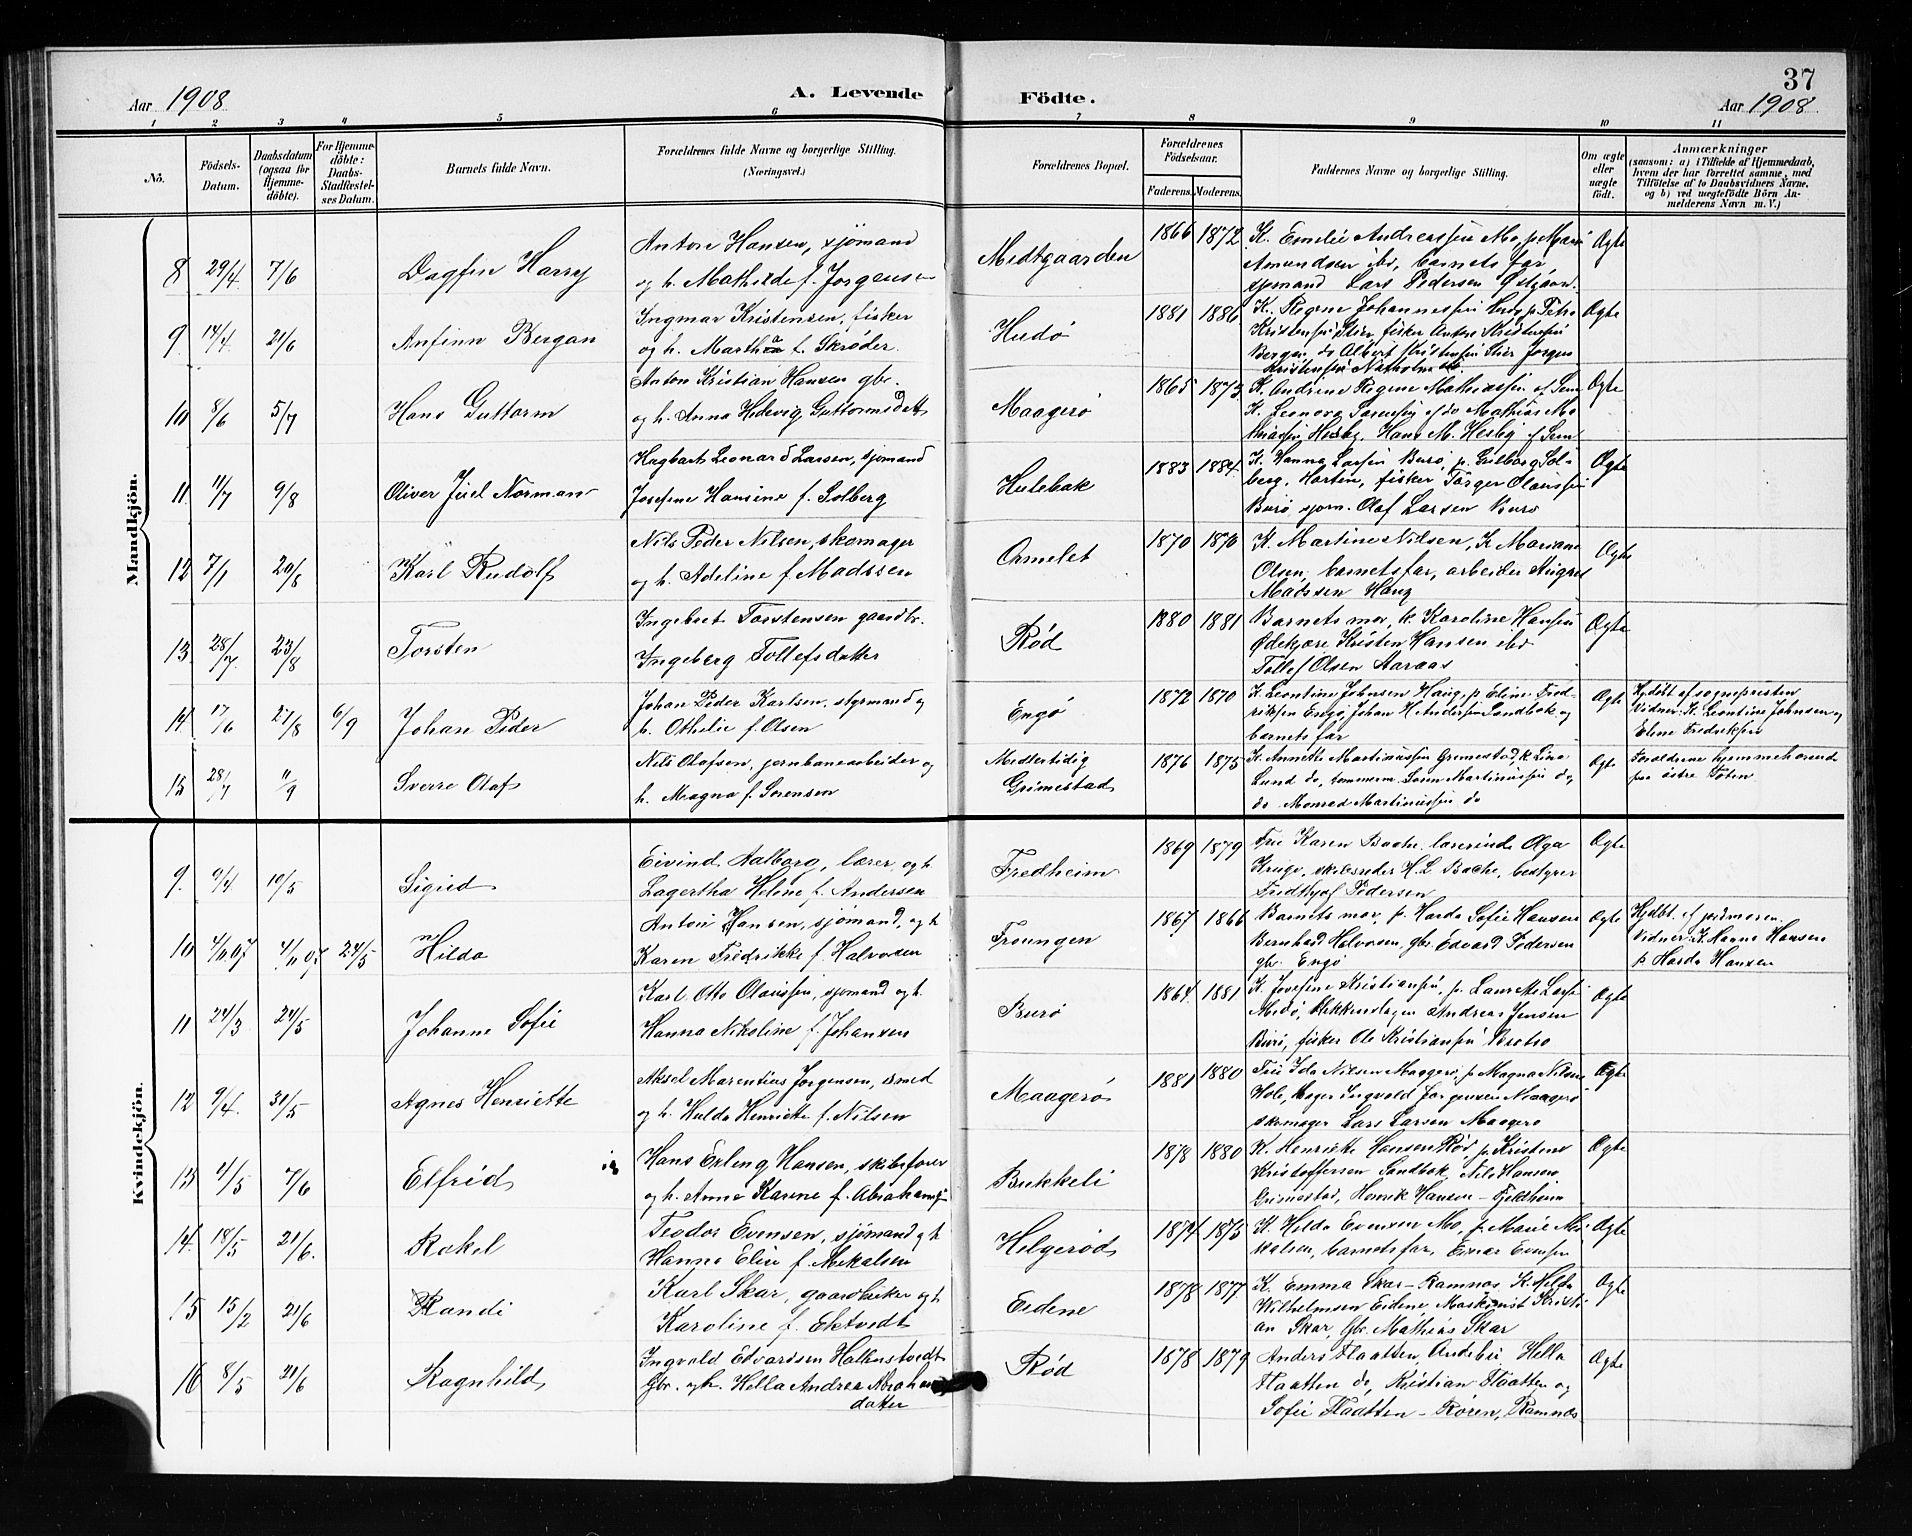 37
Aar 1908
A. Levende Födte.
Aar 1908
1 2 3 4 5 6 7 8 9 10 11
No.
Födsels-Datum.
Daabsdatum (ogsaa for Hjemmedöbte).
For Hjemmedöbte: Daabs-Stadfæstelses Datum.
Barnets fulde Navn.
Forældrenes fulde Navne og borgerlige Stilling. (Næringsvei.)
Forældrenes Bopæl.
Forældrenes Födselsaar.
Faderens. Moderens.
Faddernes Navne og borgerlige Stilling.
Om ægte eller uægte födt.
Anmærkninger (saasom: a) i Tilfælde af Hjemmedaab, hvem der har forrettet samme, med Tilföielse af to Daabsvidners Navne, og b) ved uægtefödte Börn Anmelderens Navn m. V.)
Mandkjön.
8 29/4 7/6 Dagfin Harry
Anton Hansen, sjømand
og h. Mathilde f. Jørgensen
Medtgaarden 1866 1872
K. Emilie Andreassen Mo, p. Marie
Amundsen ibd, barnets far
sjømand Lars Pedersen
Ægte
9 14/4 21/6 Anfinn Bergan
Ingmar Kristensen, fisker
og h. Martha f. Skrøder
Hudø 1881 1886
K. Regine Johannessen p. Petra
Kristensen fisker Anton Kristensen
Bergan, do Albert Kristensen Jørgen
Kristensen Natholmen
Ægte
10 8/6 5/7 Hans Guttorm
Anton Kristian Hansen gbr.
og h. Anna Hedevig Guttormsdatt
Maagerø 1865 1873
K. Andrine Regine Mathiassen af Sem
K. Leonora Sørensen af do Mathias Ma
thiassen Hesby, Hans M. Hesby af Sem
Ægte
11 11/7 9/8 Oliver Juel Norman
Hagbart Leonard Larsen, sjømand
Josefine Hansine f. Solberg
Hulebak 1883 1884
K. Hanna Larsen Burø, p. Gulborg Sol-
berg, Horten, fisker Torger Olaussen
Burø sjøm. Olaf Larsen Burø
Ægte
12 7/1 20/8 Karl Rudolf
Nils Peder Nilsen, skomager
og h. Adeline f. Madssen
Ormelet 1870 1870
K. Martine Nilsen, K. Mariane
Olsen, barnets far, arbeider August
Madssen Haug
Ægte
13 28/7 23/8 Torsten
Ingebret Torstensen gaardbr.
Ingeborg Tollefsdatter
Rød 1880 1881
Barnets mor, k. Karoline Hansen
Ødekjære Kristen Hansen ibd
Tollef Olsen Aaraas
Ægte
14 17/6 21/8 6/9 Johan Peder
Johan Peder Karlsen, styrmand og
h. Othelie f. Olsen
Engø 1872 1870
K. Leontine Johnsen Haug, p. Eline Fred-
riksen Engø, Johan H. Andersen Sandbok og
barnets far
Ægte
Hjdøbt af sognepresten
Vidner: K. Leontine Johnsen og
Eline Fredriksen
15 28/7 11/9 Sverre Olaf
Nils Olafsen, jernbanearbeider og
h. Magna f. Sørensen
Midlertidig
Grimestad 1876 1875
K. Annette Martinussen Grimestad, K Lina
Lund do, tømmerm. Søren Martinussen do,
do Monrad Martinussen do
Ægte
Forældrene hjemmehørende
fra østre Toten
Kvindekjön.
9. 9/4 10/5 Sigrid
Eivind Aalborg, lærer, og h.
Lagertha Helene f. Andersen
Fredheim 1869 1879
Frue Karen Bache, lærerinde Aga
Kruge, skibsreder H. L. Bache, bestyrer
Fridthjof Pedersen
Ægte
10 4/11.07 4/11 07 24/5 Hilda
Anton Hansen, sjømand, og h
Karen Fredrikke f. Halvorsen
Froungen 1867 1866
Barnets mor, p. Harda Sofie Hansen
Bernhard Halvorsen, gbr. Edvard Pedersen
gbr. Engø
Ægte
Hjdøbt af jordmoren.
Vidner: K. Magna Hansen
p. Harda Hansen
11 24/3 24/5 Johanne Sofie
Karl Otto Olaussen, sjømand og h.
Hanna Nikoline f. Johansen
Burø 1864 1881
K. Josefine Kristiansen, p. Laurette Larsen
Medø, blikkenslager Andreas Jensen
Burø, fisker Ole Kristiansen
Ægte
12 9/4 31/5 Agnes Henriette
Aksel Marentius Jørgensen, smed
og h. Hulda Henriette f. Nilsen
Maagerø 1881 1880
Frue Ida Nilsen Maagerø, p. Magna Nilsen
Ingvald Jørgensen Maagerø
skomager Lars Larsen Maagerø
Ægte
13 4/5 7/6 Elfrid
Hans Erling Hansen, skibsfører
og h. Anna Karine f. Abrahamsen
Bukkeli 1878 1880
K. Henrikke Hansen Rød, p. Kristine
Kristoffersen Sandbok, Nils Hansen
Grimestad, Henrik Hansen - Fjeldheim
Ægte
14. 18/5 21/6. Rakel
Teodor Evensen, sjømand og h
Hanna Elise f. Mikalsen
Helgerød 1874 1873
K. Hilda Evensen Mo, p. Marie Mi-
kalsen, barnets far, Einar Evensen
Ægte
15 15/2 21/6 Randi
Karl Skar, gaardbruker og h
Karoline f. Ektvedt
Eidene 1878 1877
K. Emma Skar - Ramnæs K. Hilda
Wilhelmsen Eidene, Maskinist Kristi-
an Skar, Gbr. Mathias Skar
Ægte
16 8/5 21/6 Ragnhild
Ingvald Edvardsen Halkenstvedt
Gbr. og h. Hella Andrea Abrahams
datter
Rød 1878 1879
Anders Flaatten, Andebu, Hella
Flaatten do, Kristian Flaatten og
Sofie Flaatten - Røren, Ramnæs
Ægte